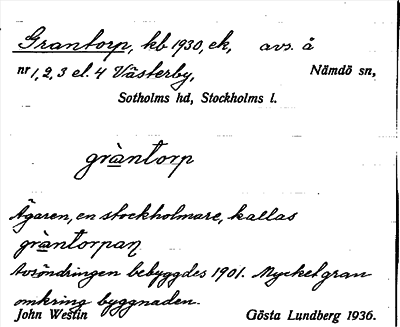 Grantorp, kb 1930, ek, avs. å
nr 1, 2, 3 el. 4 Västerby, Nämdö sn,
Sotholms hd, Stockholms l.
gràntorp
Ägaren, en stockholmare, kallas
gràntorpaη
Avsöndringen bebyggdes 1901. Mycket gran
omkring byggnaden.
John Westin Gösta Lundberg 1936.